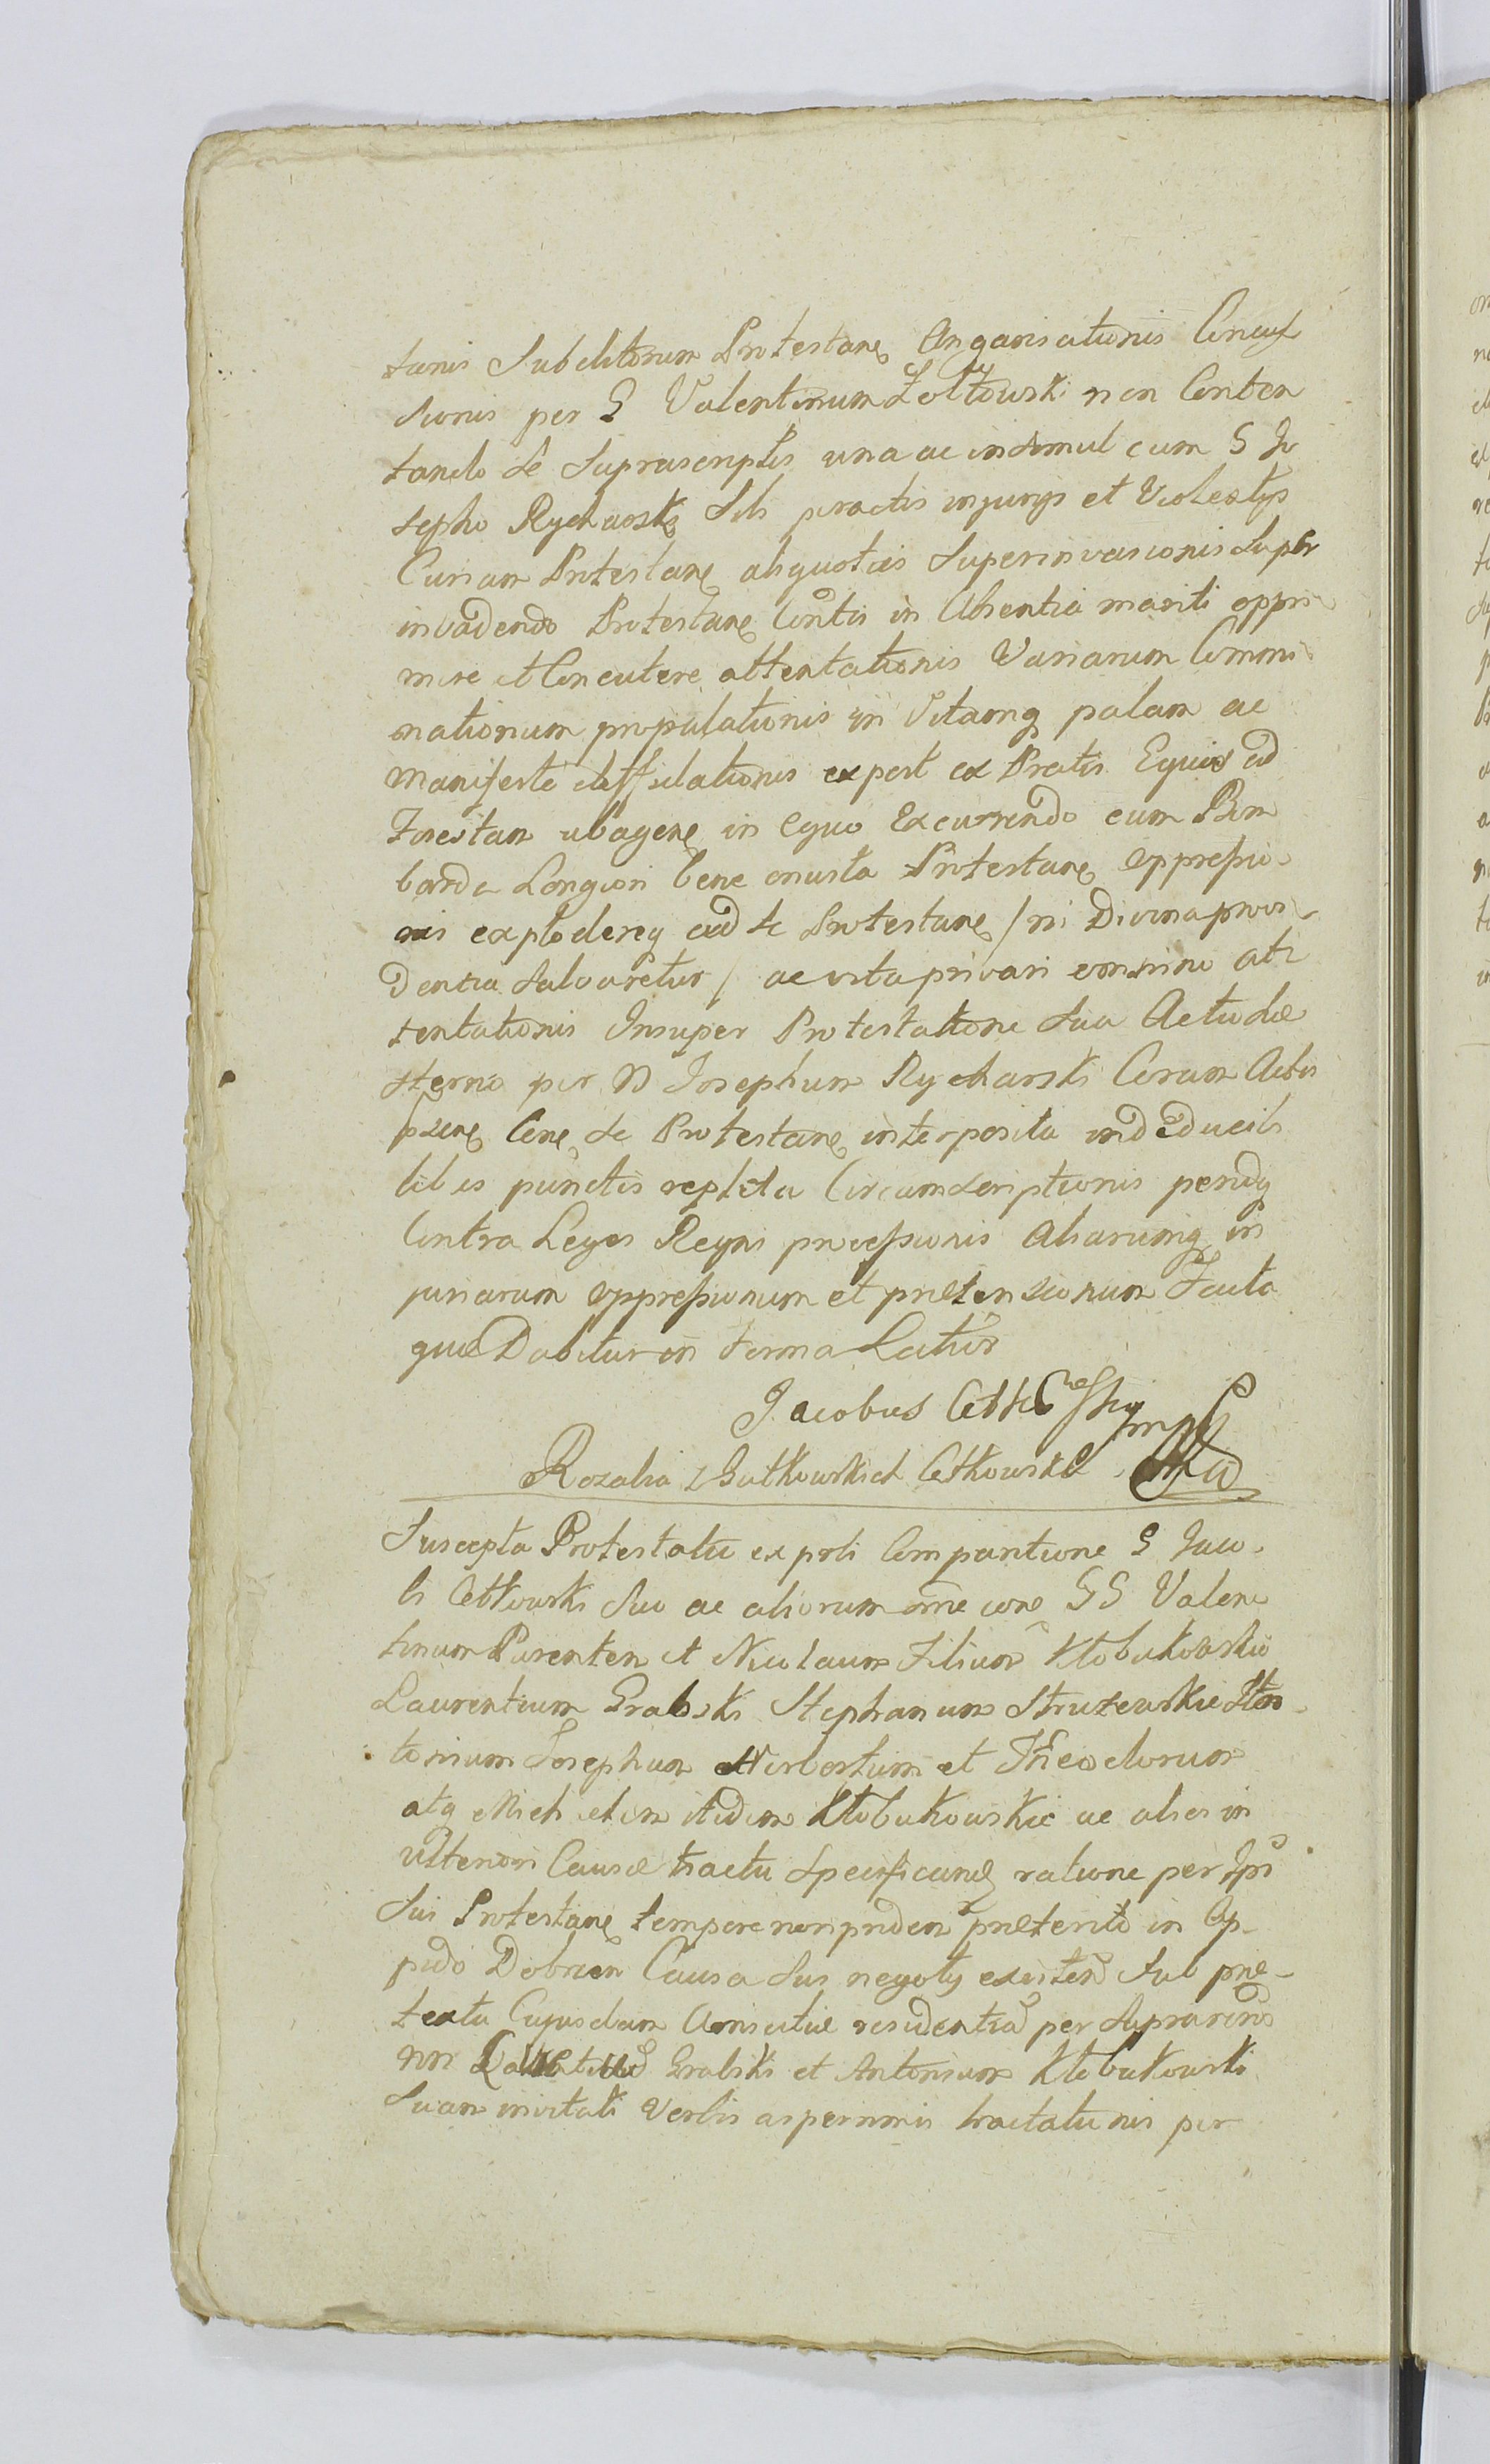 tanis Subditorum Protestane Angarisationis Concus
sionis per G Valentinum Zołtowski non Conten
tando se Suprascriptis una ac insimul cum G Jo
sepho Rycharski Sibi peractis injurijs et Violentijs
Curiam Protestane aliquoties Superinvasionis Super
invadendo Protestane Contis in Absentia mariti oppri
mere et Concutere attentationis Variarum Commi
nationum propalationis in Vitamq palam ac
Manifeste diffidationis ex post ex Pratis Equis ad
Forestam ubagene in equo Excurrendo cum Bom
barda Longiori bene onusta Protestane oppressio
nis explodereq ad se Protestane / ni Divina provi
dentia Salvaretur / ac vita privari omnino att
tentationis Insuper Protestatione Sua Actu he
sterno per N Josephum Rycharski Coram Actis
psene Cone se Protestane interposita indeducibi
libus punctis repleta Circumscriptionis peridq
Contra Leges Regni processionis Aliarumq in
juriarum oppressionum et prætensionum Facta
quæ Dabitur in Forma Latiori
Jacobus Cetkowski mp
Rozalia z Gutkowskich Cetkowska
Suscepta Protestatio ex psti Comparitione G Jaco
bi Cetkowski Suo ac aliorum nne cone GG Valen
tinum Parentem et Nicolaum Filium Kłobukowskie
Laurentium Grabski Stephanum Struzewskie An
tonium Josephum Norbertum et Theodorum
atq Michaelem itidem Kłobukowskie ac alios in
ulteriori Causæ tractu Specificand ratione per Ipsi
Sui Protestane tempore non pridem præterito in Op
pido Dobrzen Causa Sui negotij existen Sub præ
textu Cujusdam Amicitiæ residentiæ per Supra
nn Grabski et Antonium Kłobukowski
Suam invitati Verbis asperrimis tractationis per